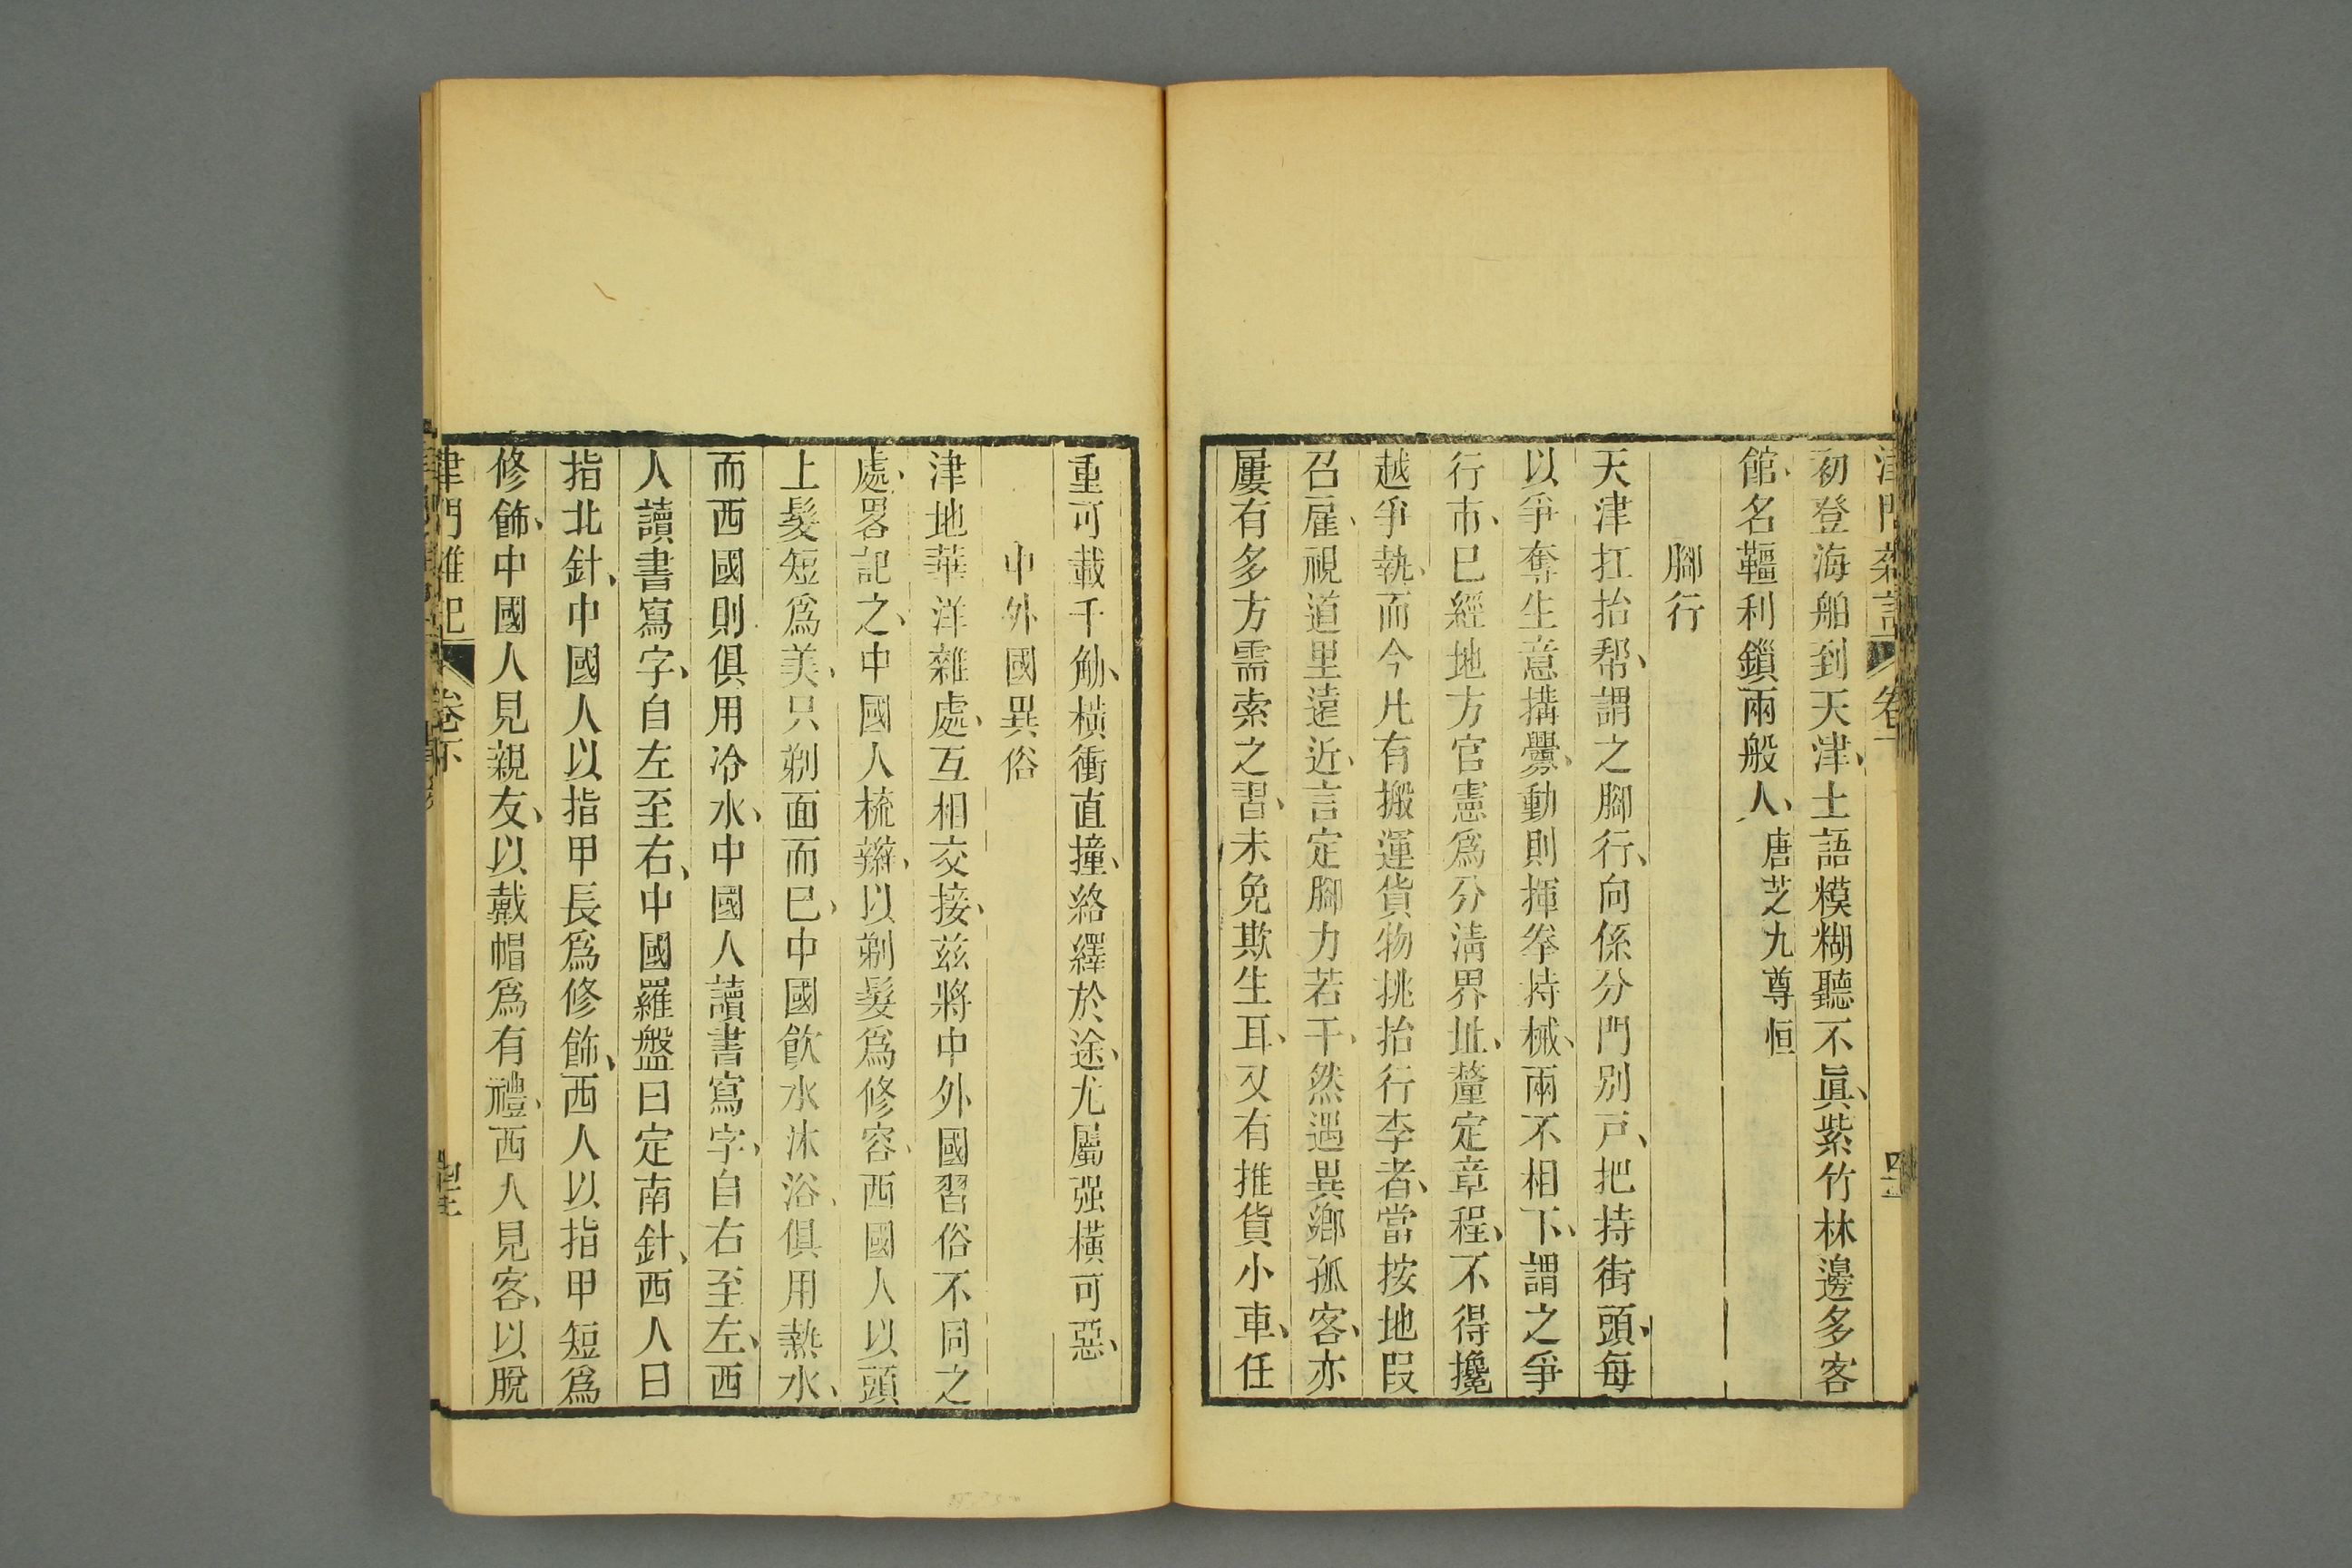 初登海舶到天津、土語糢糊聽不眞、紫竹林邊多客
館、名韁利鎖兩般人、唐芝九尊恒
腳行
天津扛抬帮、謂之腳行、向係分門別戸、把持街頭、每
以爭奪生意搆釁、動則揮拳持械、兩不相下、謂之爭
行市、巳經地方官憲爲分淸界址、釐定章程、不得攙
越爭執、而今凢有搬運貨物挑抬行李者、當按地段
召雇、視道里遠近、言定腳力若干、然遇異鄉孤客、亦
屢有多方需索之習、未免欺生耳、又有推貨小車、任
重可載千觔、橫衝直撞、絡繹於途、尤屬强橫可惡、
中外國異俗
津地華洋雜處、互相交接、茲將中外國習俗不同之
處、畧記之、中國人梳辮、以剃髮爲修容、西國人以頭
上髮短爲美、只剃面而巳、中國飮水沐浴、俱用熱水、
而西國則俱用冷水、中國人讀書寫字、自右至左、西
人讀書寫字、自左至右、中國羅盤曰定南針、西人曰
指北針、中國人以指甲長爲修飾、西人以指甲短爲
修飾、中國人見親友、以戴帽爲有禮、西人見客、以脫
津門雜記
卷下